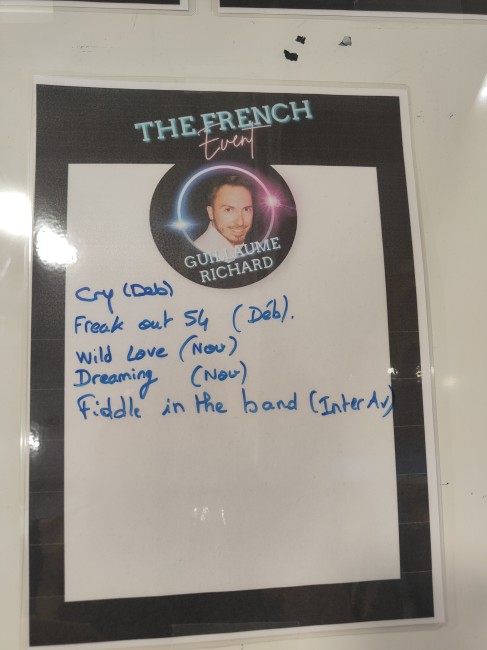 THE FRENCH
Event
GUILLAUME
RICHARD
Cry (Deb)
Freak out 54 (Déb).
Wild Love (Nov)
Dreaming (Nov)
Fiddle in the band (Inter Av)